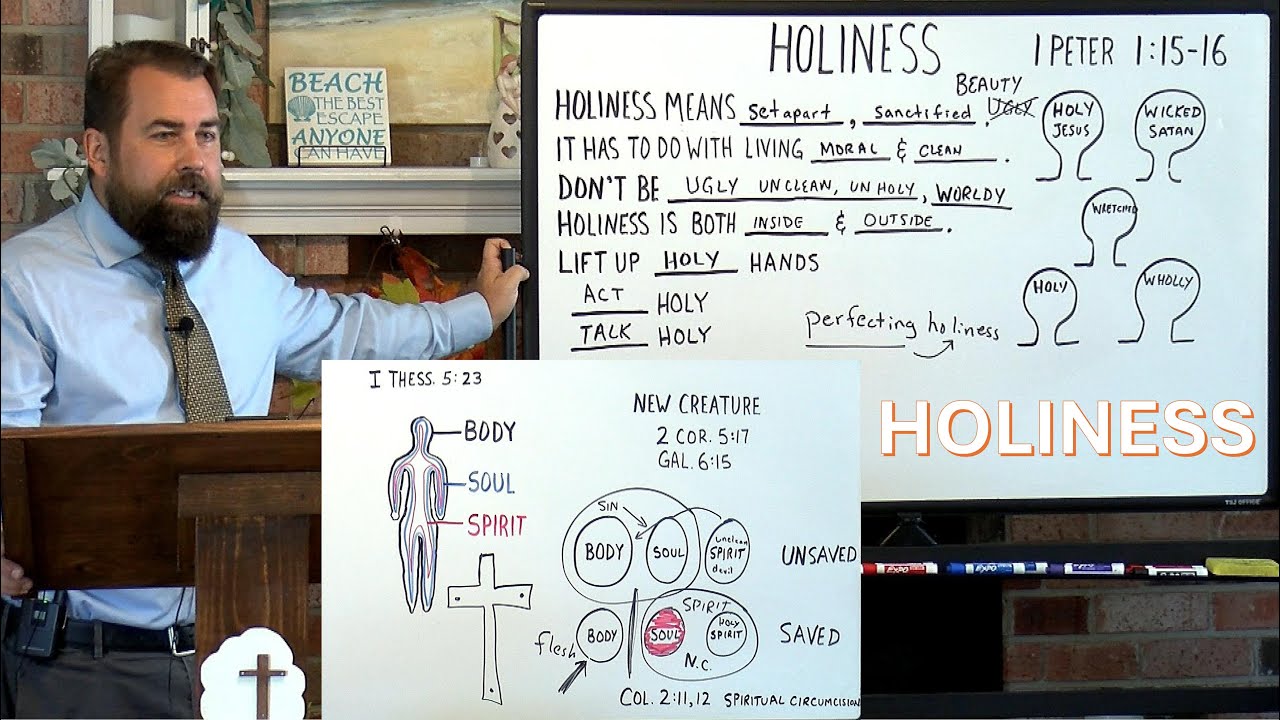 BEACH
THE BEST
ESCAPE
ANYONE
CAN HAVE
HOLINESS
1 PETER 1:15-16
BEAUTY
HOLINESS MEANS set apart, sanctified. UGLY
IT HAS TO DO WITH LIVING MORAL & CLEAN.
DON'T BE UGLY UNCLEAN, UNHOLY, WORLDY
HOLINESS IS BOTH INSIDE & OUTSIDE.
LIFT UP HOLY HANDS
ACT HOLY
TALK HOLY
HOLY
JESUS
WICKED
SATAN
WRETCHED
HOLY
WHOLLY
perfecting holiness
HOLINESS
TSJ OFFICE
EXPO
EXPO
EXPO
I THESS. 5:23
BODY
SOUL
SPIRIT
NEW CREATURE
2 COR. 5:17
GAL. 6:15
SIN
BODY
SOUL
unclean
SPIRIT
devil
UNSAVED
flesh
BODY
SPIRIT
SOUL
HOLY
SPIRIT
N.C.
SAVED
COL. 2:11,12 SPIRITUAL CIRCUMCISION